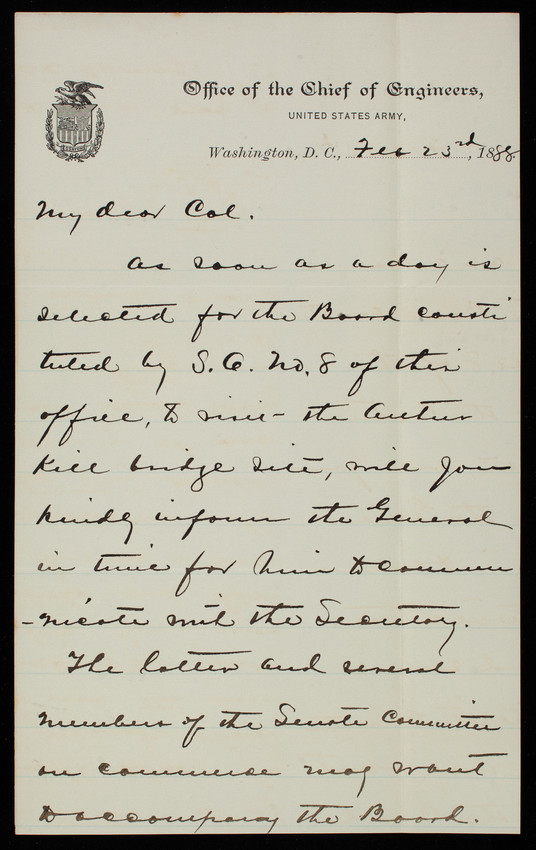 Office of the Chief of Engineers,
UNITED STATES ARMY,
Washington, D. C., Feb 23rd, 1888.
My dear Col.
As soon as a day is
selected for the Board consti
tuted by S.O. No. 8 of this
office, to visit the Arthur
Kill bridge site, will you
kindly inform the General
in time for him to commu
-nicate with the Secretary.
The latter and several
members of the Senate Committee
on commerce may want
to accompany the Board.